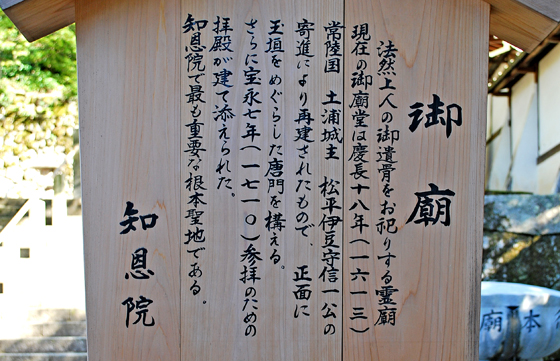 御廟
法然上人の御遺骨をお祀りする霊廟
現在の御廟堂は慶長十八年(一六一三)
常陸国 土浦城主 松平伊豆守信一公の
寄進により再建されたもので、正面に
玉垣をめぐらした唐門を構える。
さらに宝永七年(一七一〇)参拝のための
拝殿が建て添えられた。
知恩院で最も重要な根本聖地である。
知恩院
廟本